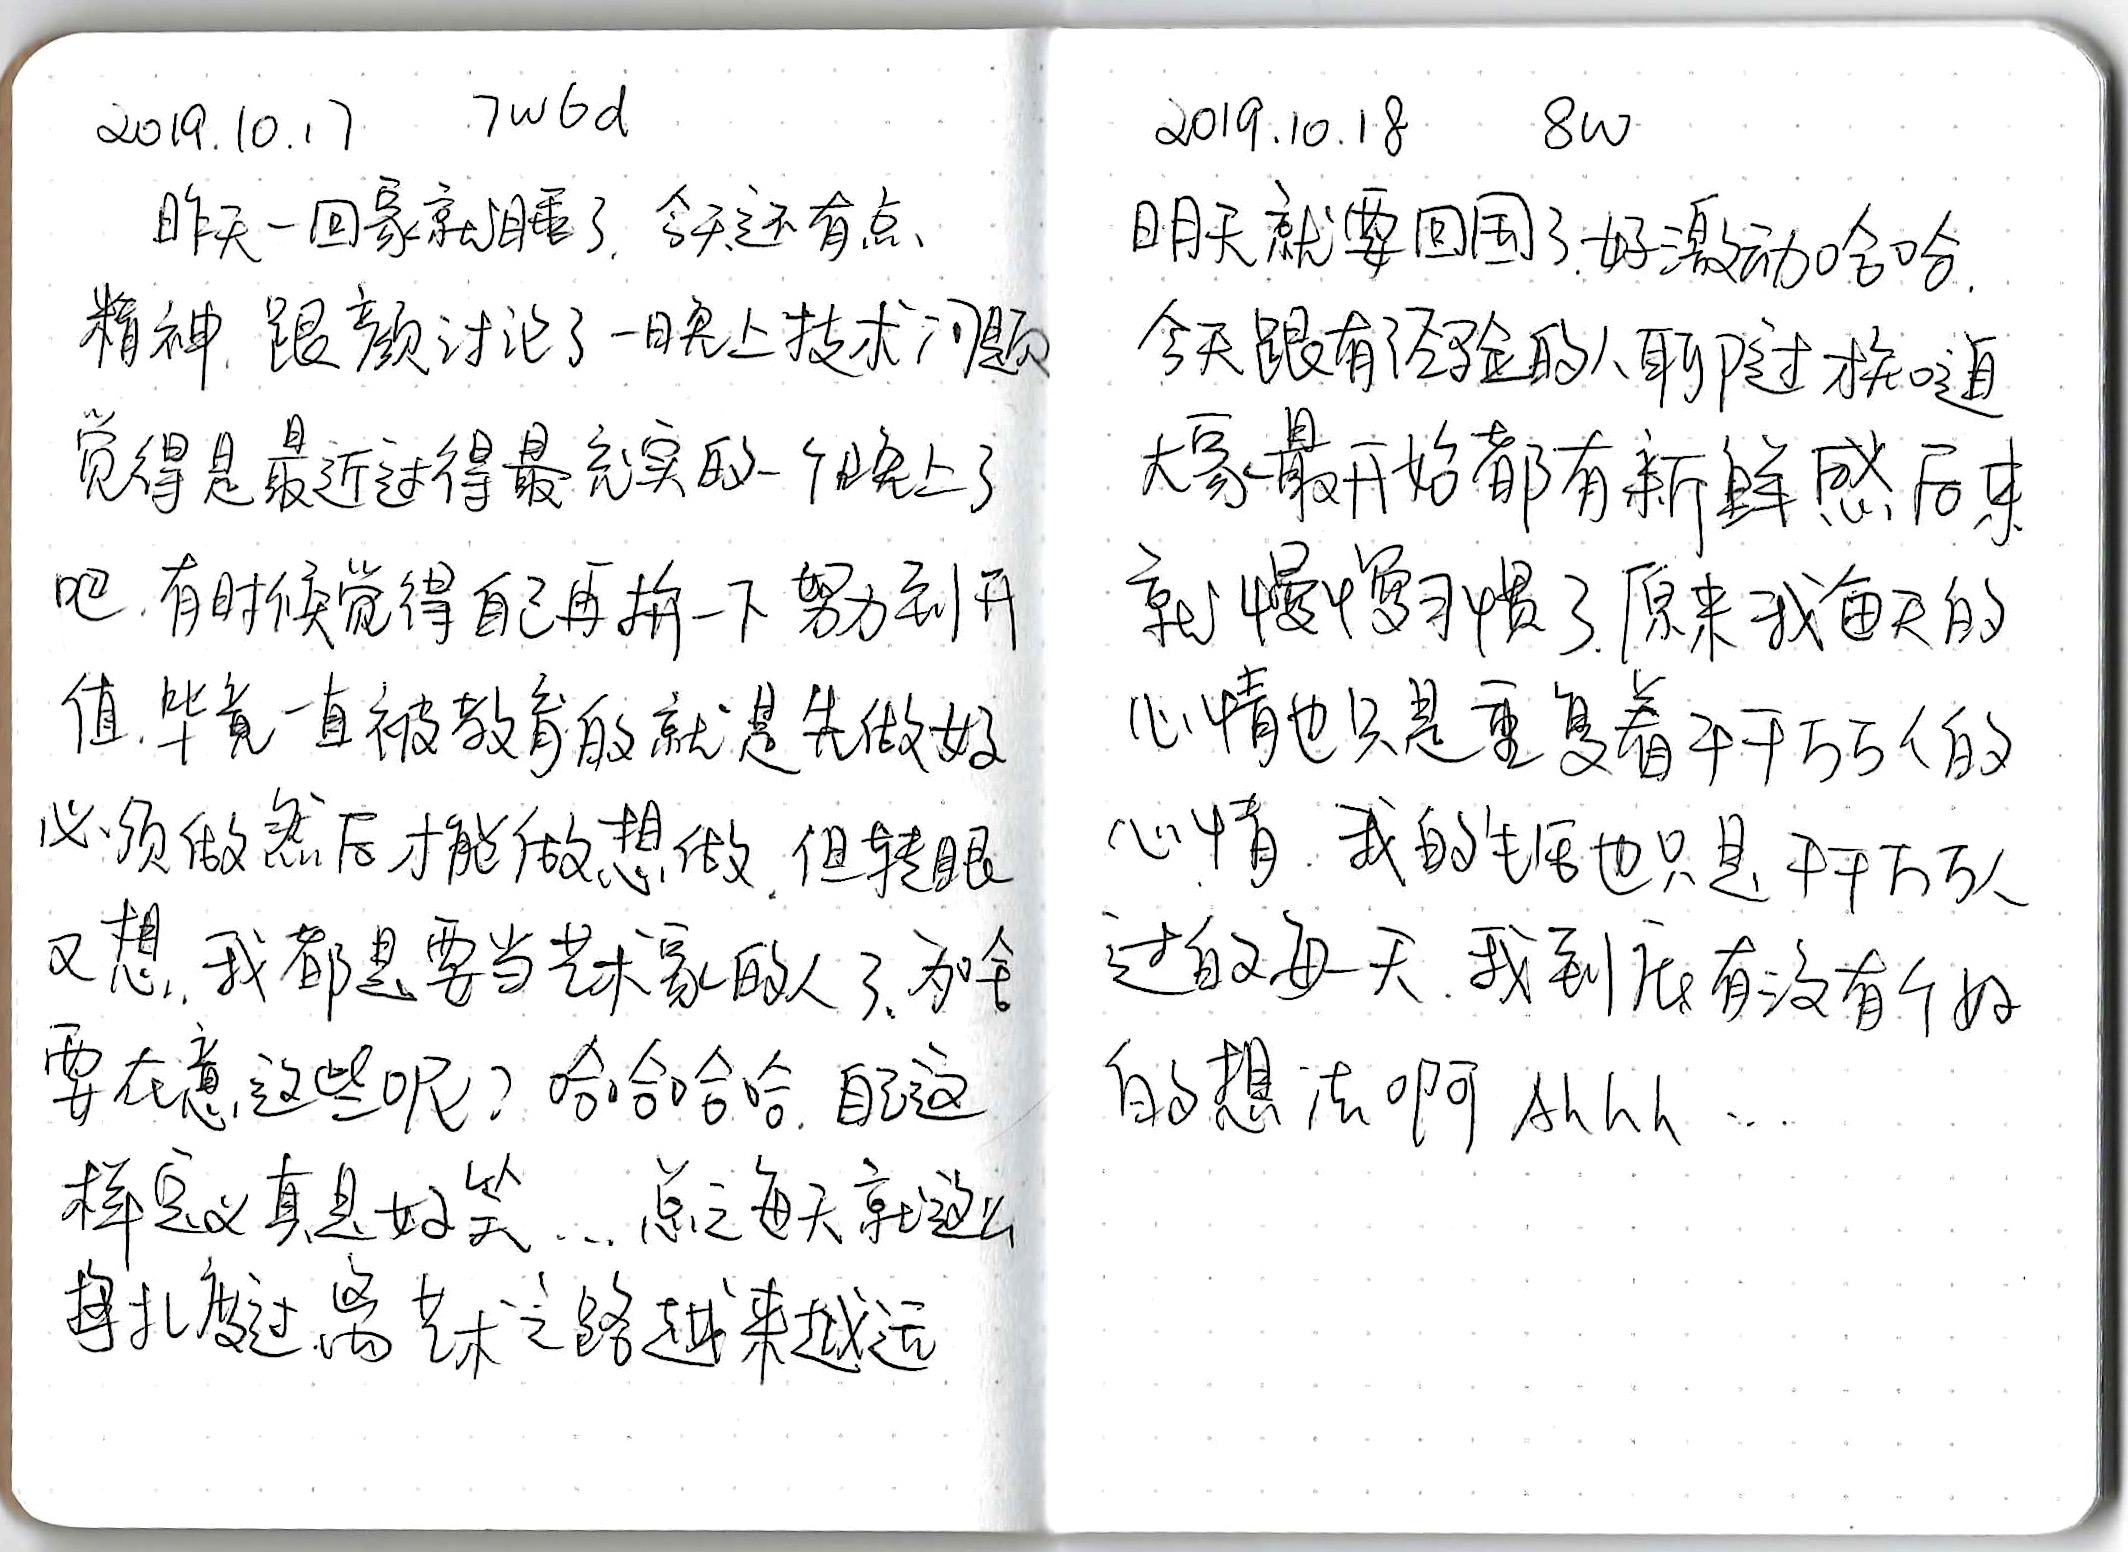 2019.10.17 7w6d
昨天一回家就睡了.今天还有点
精神.跟颜讨论了一晚上技术问题
觉得是最近过得最充实的一个晚上了
吧.有时候觉得自己再拼一下努力到开
值.毕竟一直被教育的就是先做好
必须做然后才能做想做.但转眼
又想.我都是要当艺术家的人了.为啥
要在意这些呢？哈哈哈哈.自己这
样定义真是好笑...总之每天就这么
挣扎度过.离艺术之路越来越远
2019.10.18 8w
明天就要回国了.好激动哈哈.
今天跟有经验的人聊过才知道
大家最开始都有新鲜感后来
就慢慢习惯了.原来我每天的
心情也只是重复着千千万万人的
心情.我的生活也只是千千万万人
过的每一天.我到底有没有个好
的想法啊 Ahhh ...